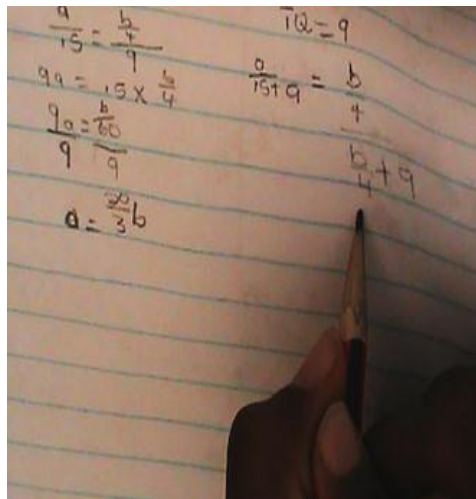 a/15 = b/4/9
9a = 15 x b/4
9a/9 = b/60/9
a = 20/3 b
TQ = 9
a/15+9 = b/4/b/4+9